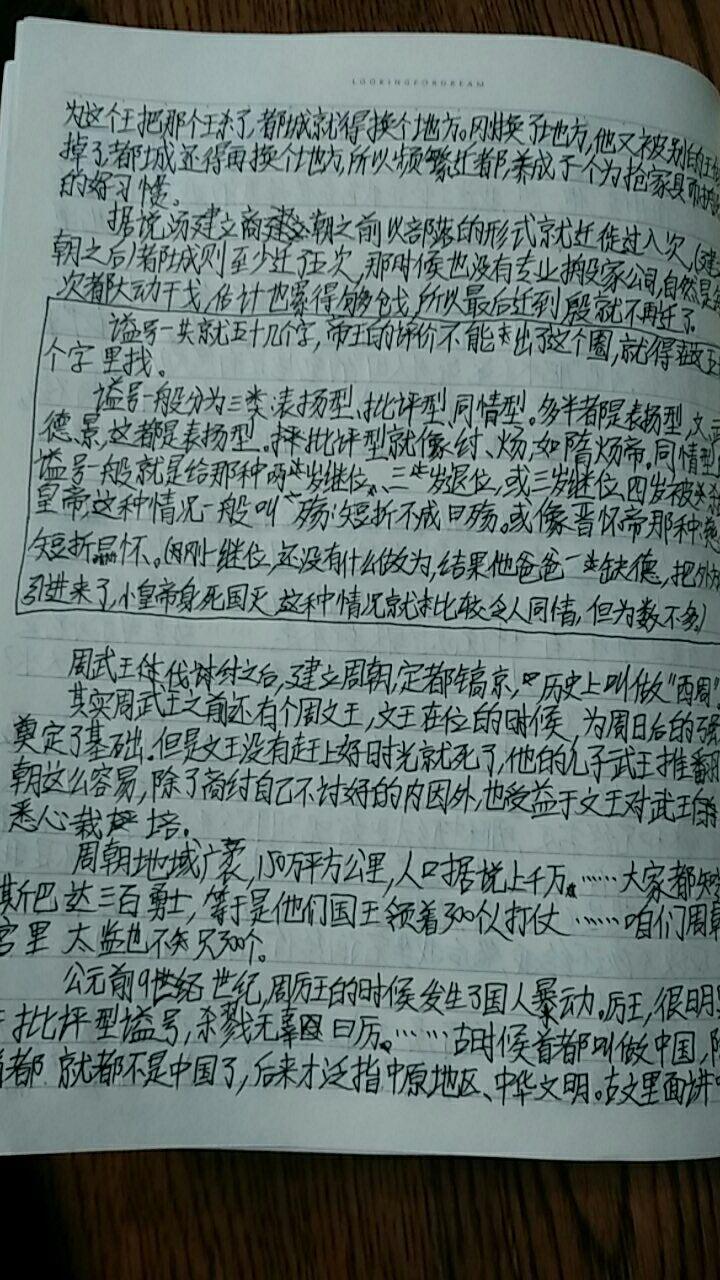 LOOKINGFORDREAM
为这个王把那个王杀了,都城就得换个地方。刚换了地方,他又被别的王
掉了,都城还得再换个地方,所以频繁迁都,养成了个为抢家具而
的好习惯。
据说汤建立商朝之前以部落的形式就迁徙过八次,(建
朝之后)都城则至少迁了五次,那时候也没有专业搬家公司,自然是每
次都大动干戈,估计也累得够呛,所以最后迁到殷就不再迁了。
谥号一共就五十几个字,帝王的评价不能出了这个圈,就得在这五
个字里找。
谥号一般分为三类:表扬型、批评型、同情型。多半都是表扬型,文、武
德、景,这都是表扬型。批评型就像纣、炀,如隋炀帝。同情型
谥号一般就是给那种两岁继位、三岁退位,或三岁继位、四岁被杀
皇帝,这种情况一般叫“殇:短折不成曰殇。或像晋怀帝那种,慈
短折曰怀。(刚上继位,还没有什么做为,结果他爸爸一缺德,把外
引进来了,小皇帝身死国灭,这种情况就比较令人同情,但为数不多)
周武王伐纣之后,建立周朝,定都镐京,历史上叫做“西周”
其实周武王之前还有个周文王,文王在位的时候,为周日后的强
奠定了基础.但是文王没有赶上好时光就死了,他的儿子武王推翻
朝这么容易,除了商纣自己不讨好的内因外,也受益于文王对武王的
悉心栽培.
周朝地域广袤,150万平方公里,人口据说上千万。……大家都知
斯巴达三百勇士,等于是他们国王领着300个人打仗……咱们周朝
宫里太监也不只300个.
公元前9世纪,周厉王的时候发生了国人暴动.厉王,很明显
批评型谥号,杀戮无辜曰厉。……古时候首都叫做中国,
首都就都不是中国了,后来才泛指中原地区、中华文明。古文里面讲